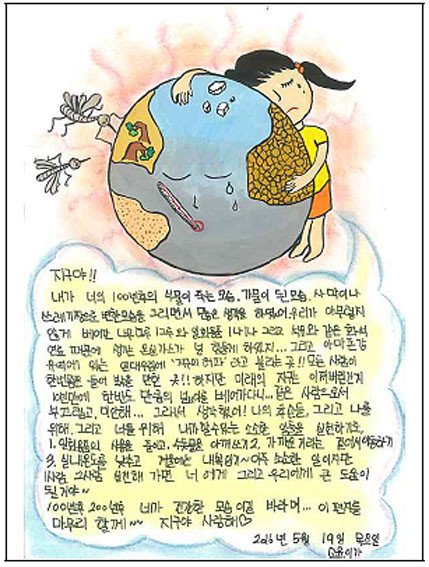 지구야!!
내가 너의 100년후의 식물이 죽는 모습, 가뭄이 된 모습, 사막이나
쓰레기장으로 변한모습을 그리면서 많은 생각을 하였어. 우리가 아무렇지
않게 베어만 나무 그리고 석유와 같은 화석
연료 때문에 생긴 온실가스가 널 힘들게 하였지... 그리고 아마존강
유역에 있는 열대우림에 '지구의 허파' 라고 불리는 곳!! 모든 사람이
한번쯤은 들어 봤을 만한 곳!! 하지만 미래의 지구는
10년만에 한반도 만큼의 베어가다니... 같은 사람으로서
부끄럽고, 미안해... 그래서 생각했어! 나의 후손들, 그리고 나를
위해, 그리고 너를 위해 내가할수있는 소소한 일들을 실천하기로,
1. 일회용품의 사용을 줄이고, 수돗물은 아껴쓰기 2. 가까운 거리는 걸어서이동하기
3. 실내온도를 낮추고 겨울에는 내복입기~ 아주 소소한 일이지만
1사람, 2사람 실천해 가면 너에게 그리고 우리에게 큰 도움이
될거야~
100년후 200년후 네가 건강한 모습이길 바라며... 이 편지를
마무리 할게~~ 지구야 사랑해♡
2016년 5월 19일 목요일